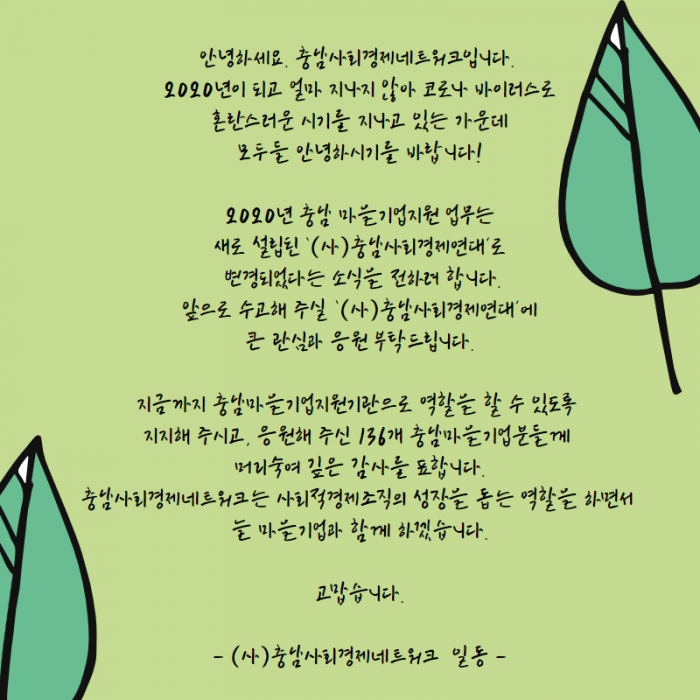 안녕하세요. 충남사회경제네트워크입니다.
2020년이 되고 얼마 지나지 않아 코로나 바이러스로
혼란스러운 시기를 지나고 있는 가운데
모두들 안녕하시기를 바랍니다!
2020년 충남 마을기업지원 업무는
새로 설립된 '(사)충남사회경제연대'로
변경되었다는 소식을 전하려 합니다.
앞으로 수고해 주실 '(사)충남사회경제연대'에
큰 관심과 응원 부탁드립니다.
지금까지 충남마을기업지원기관으로 역할을 할 수 있도록
지지해 주시고, 응원해 주신 136개 충남마을기업분들께
머리숙여 깊은 감사를 표합니다.
충남사회경제네트워크는 사회적경제조직의 성장을 돕는 역할을 하면서
늘 마을기업과 함께 하겠습니다.
고맙습니다.
- (사)충남사회경제네트워크 일동 -